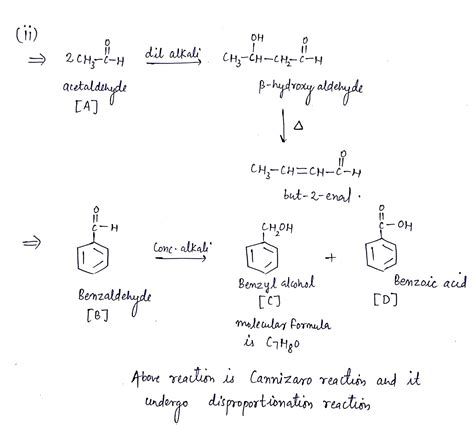 (ii)
⇒ 2CH₃-C(=O)-H dil alkali CH₃-CH(OH)-CH₂-C(=O)-H
acetaldehyde
[A]
β-hydroxy aldehyde
Δ
CH₃-CH=CH-C(=O)-H
but-2-enal.
⇒ O C-H Conc. alkali CH₂OH + O C-OH
Benzaldehyde
[B]
Benzyl alcohol
[C]
Benzoic acid
[D]
molecular formula
is C₇H₈O
Above reaction is Cannizaro reaction and it
undergo disproportionation reaction